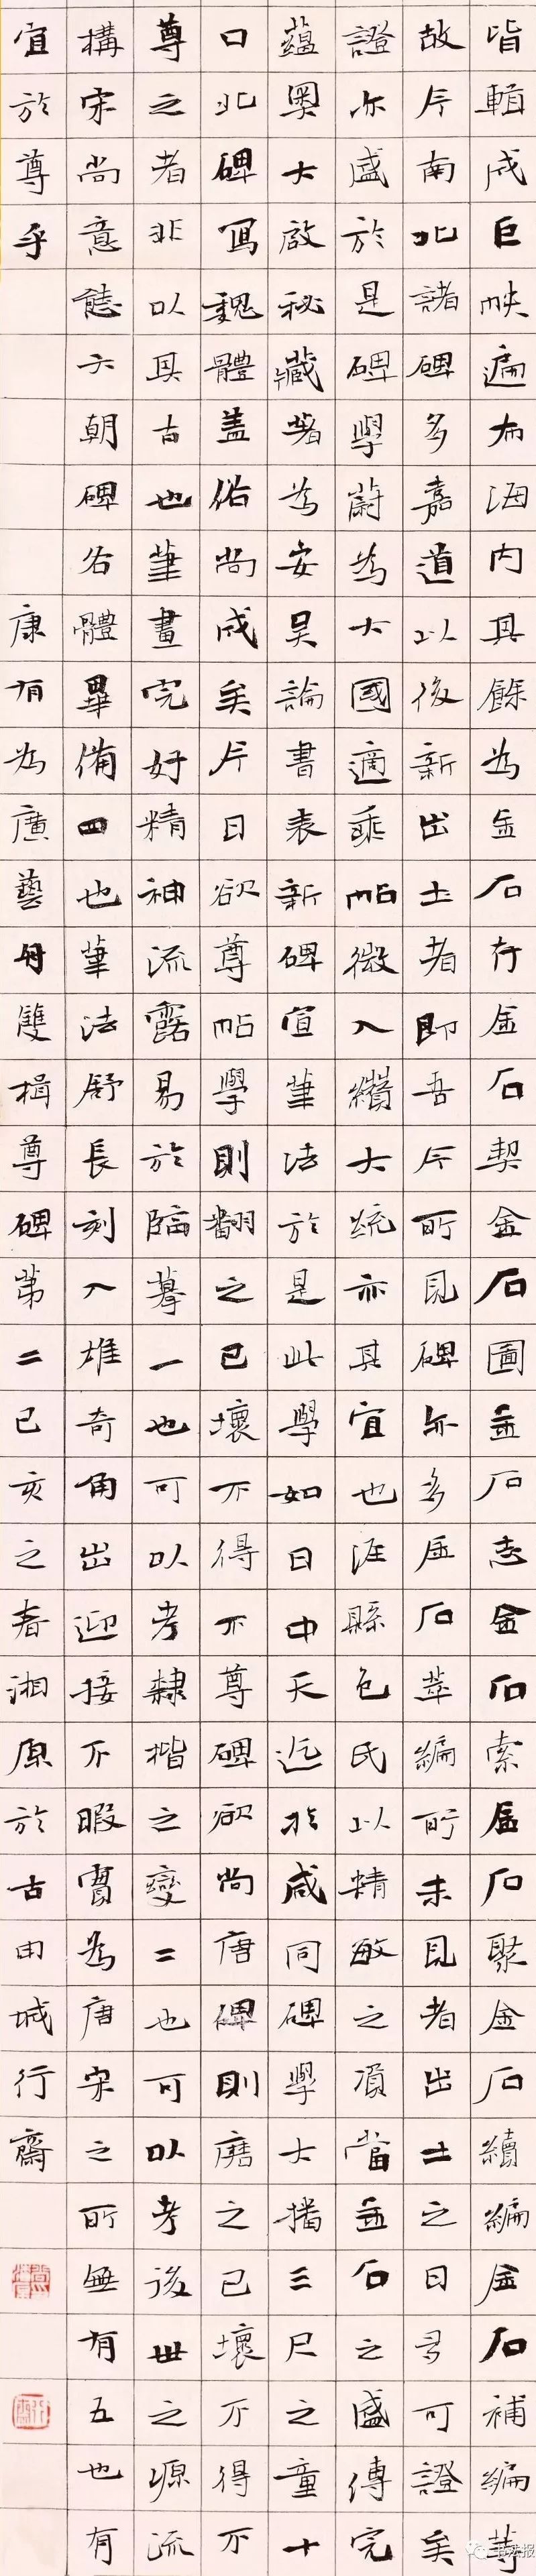 皆輯成巨帙遍布海内其餘為金石存金石契金石圖金石志金石索金石聚金石續編金石補編等
故今南北諸碑多嘉道以後新出土者即吾今所見碑亦多金石萃編所未見者出土之日多可證矣
證亦盛於是碑學蔚為大國適乘帖微入纘大統亦其宜也涇縣包氏以精敏之當金石之盛傳完
蘊奥大啟秘藏著為安吴論書表新碑宣筆法於是此學如日中天迄於咸同碑學大播三尺之童十
口北碑寫魏體盖俗尚成矣今日欲尊帖學則翻之已壞不得不尊碑欲尚唐碑則磨之已壞不得不
尊之者非以其古也筆畫完好精神流露易於臨摹一也可以考隸楷之變二也可以考後世之源流
構宋尚意態六朝碑各體畢備四也筆法舒長刻入雄奇角出迎接不暇實為唐宋之所無有五也有
宜於尊乎
康有為廣藝舟雙楫尊碑第二己亥之春湘原於古田城行齋
书法报